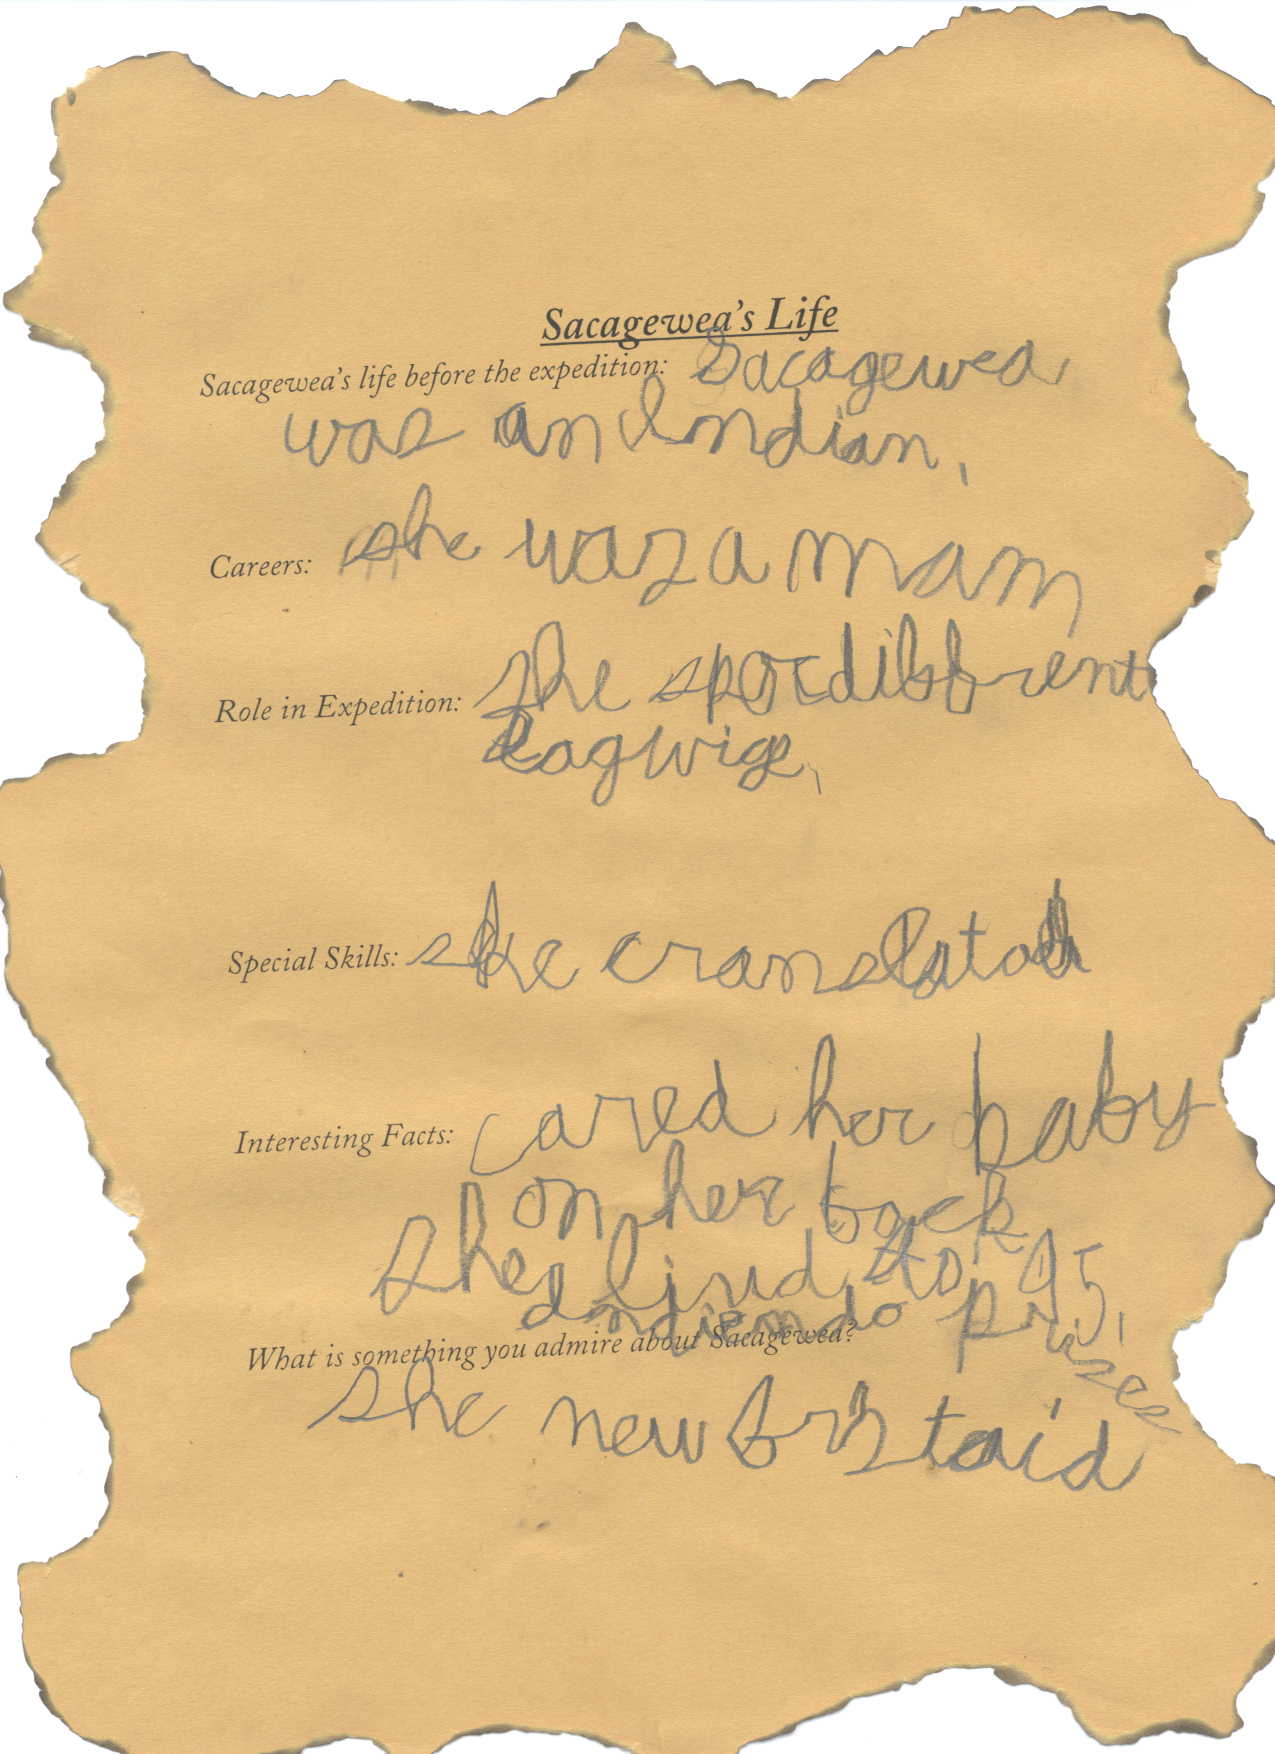 Sacagewea's Life
Sacagewea's life before the expedition: Sacagewea
was an Indian.
Careers: she was a mam
Role in Expedition: She spoc diffrent
lagwige.
Special Skills: she translatod
Interesting Facts: cared her baby
on her back
She livd to 95.
and do prizes
What is something you admire about Sacagewea?
she new first aid